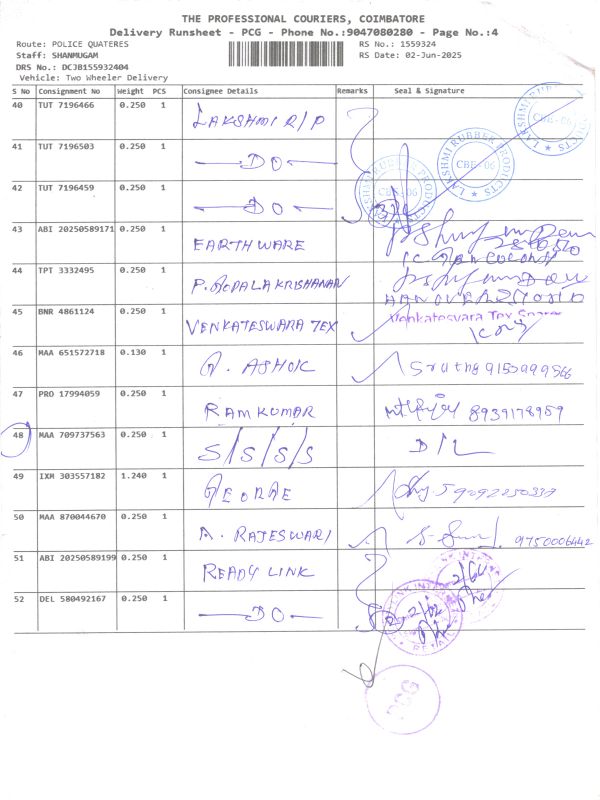 THE PROFESSIONAL COURIERS, COIMBATORE
Delivery Runsheet - PCG - Phone No.:9047080280 - Page No.:4
Route: POLICE QUATERES
RS No.: 1559324
Staff: SHANMUGAM
RS Date: 02-Jun-2025
DRS No.: DCJB155932404
Vehicle: Two Wheeler Delivery
S No Consignment No Weight PCS Consignee Details Remarks Seal & Signature
40 TUT 7196466 0.250 1 LAKSHMI R/P
LAKSHMI RUBBER PRODUCTS CBE-06
41 TUT 7196503 0.250 1 DO
LAKSHMI RUBBER PRODUCTS CBE-06
42 TUT 7196459 0.250 1 DO
LAKSHMI RUBBER PRODUCTS
43 ABI 20250589171 0.250 1 EARTH WARE
44 TPT 3332495 0.250 1 P. GOPALAKRISHANAN
45 BNR 4861124 0.250 1 VENKATESWARA TEX
Venkatesvara Tex
46 MAA 651572718 0.130 1 G. ASHOK
47 PRO 17994059 0.250 1 RAMKUMAR 8939178959
48 MAA 709737563 0.250 1 S/S/S/S D/L
49 IXM 303557182 1.240 1 GEORGE
50 MAA 870044670 0.250 1 A. RAJESWARI 9750006442
51 ABI 20250589199 0.250 1 READY LINK
52 DEL 580492167 0.250 1 DO
PCG